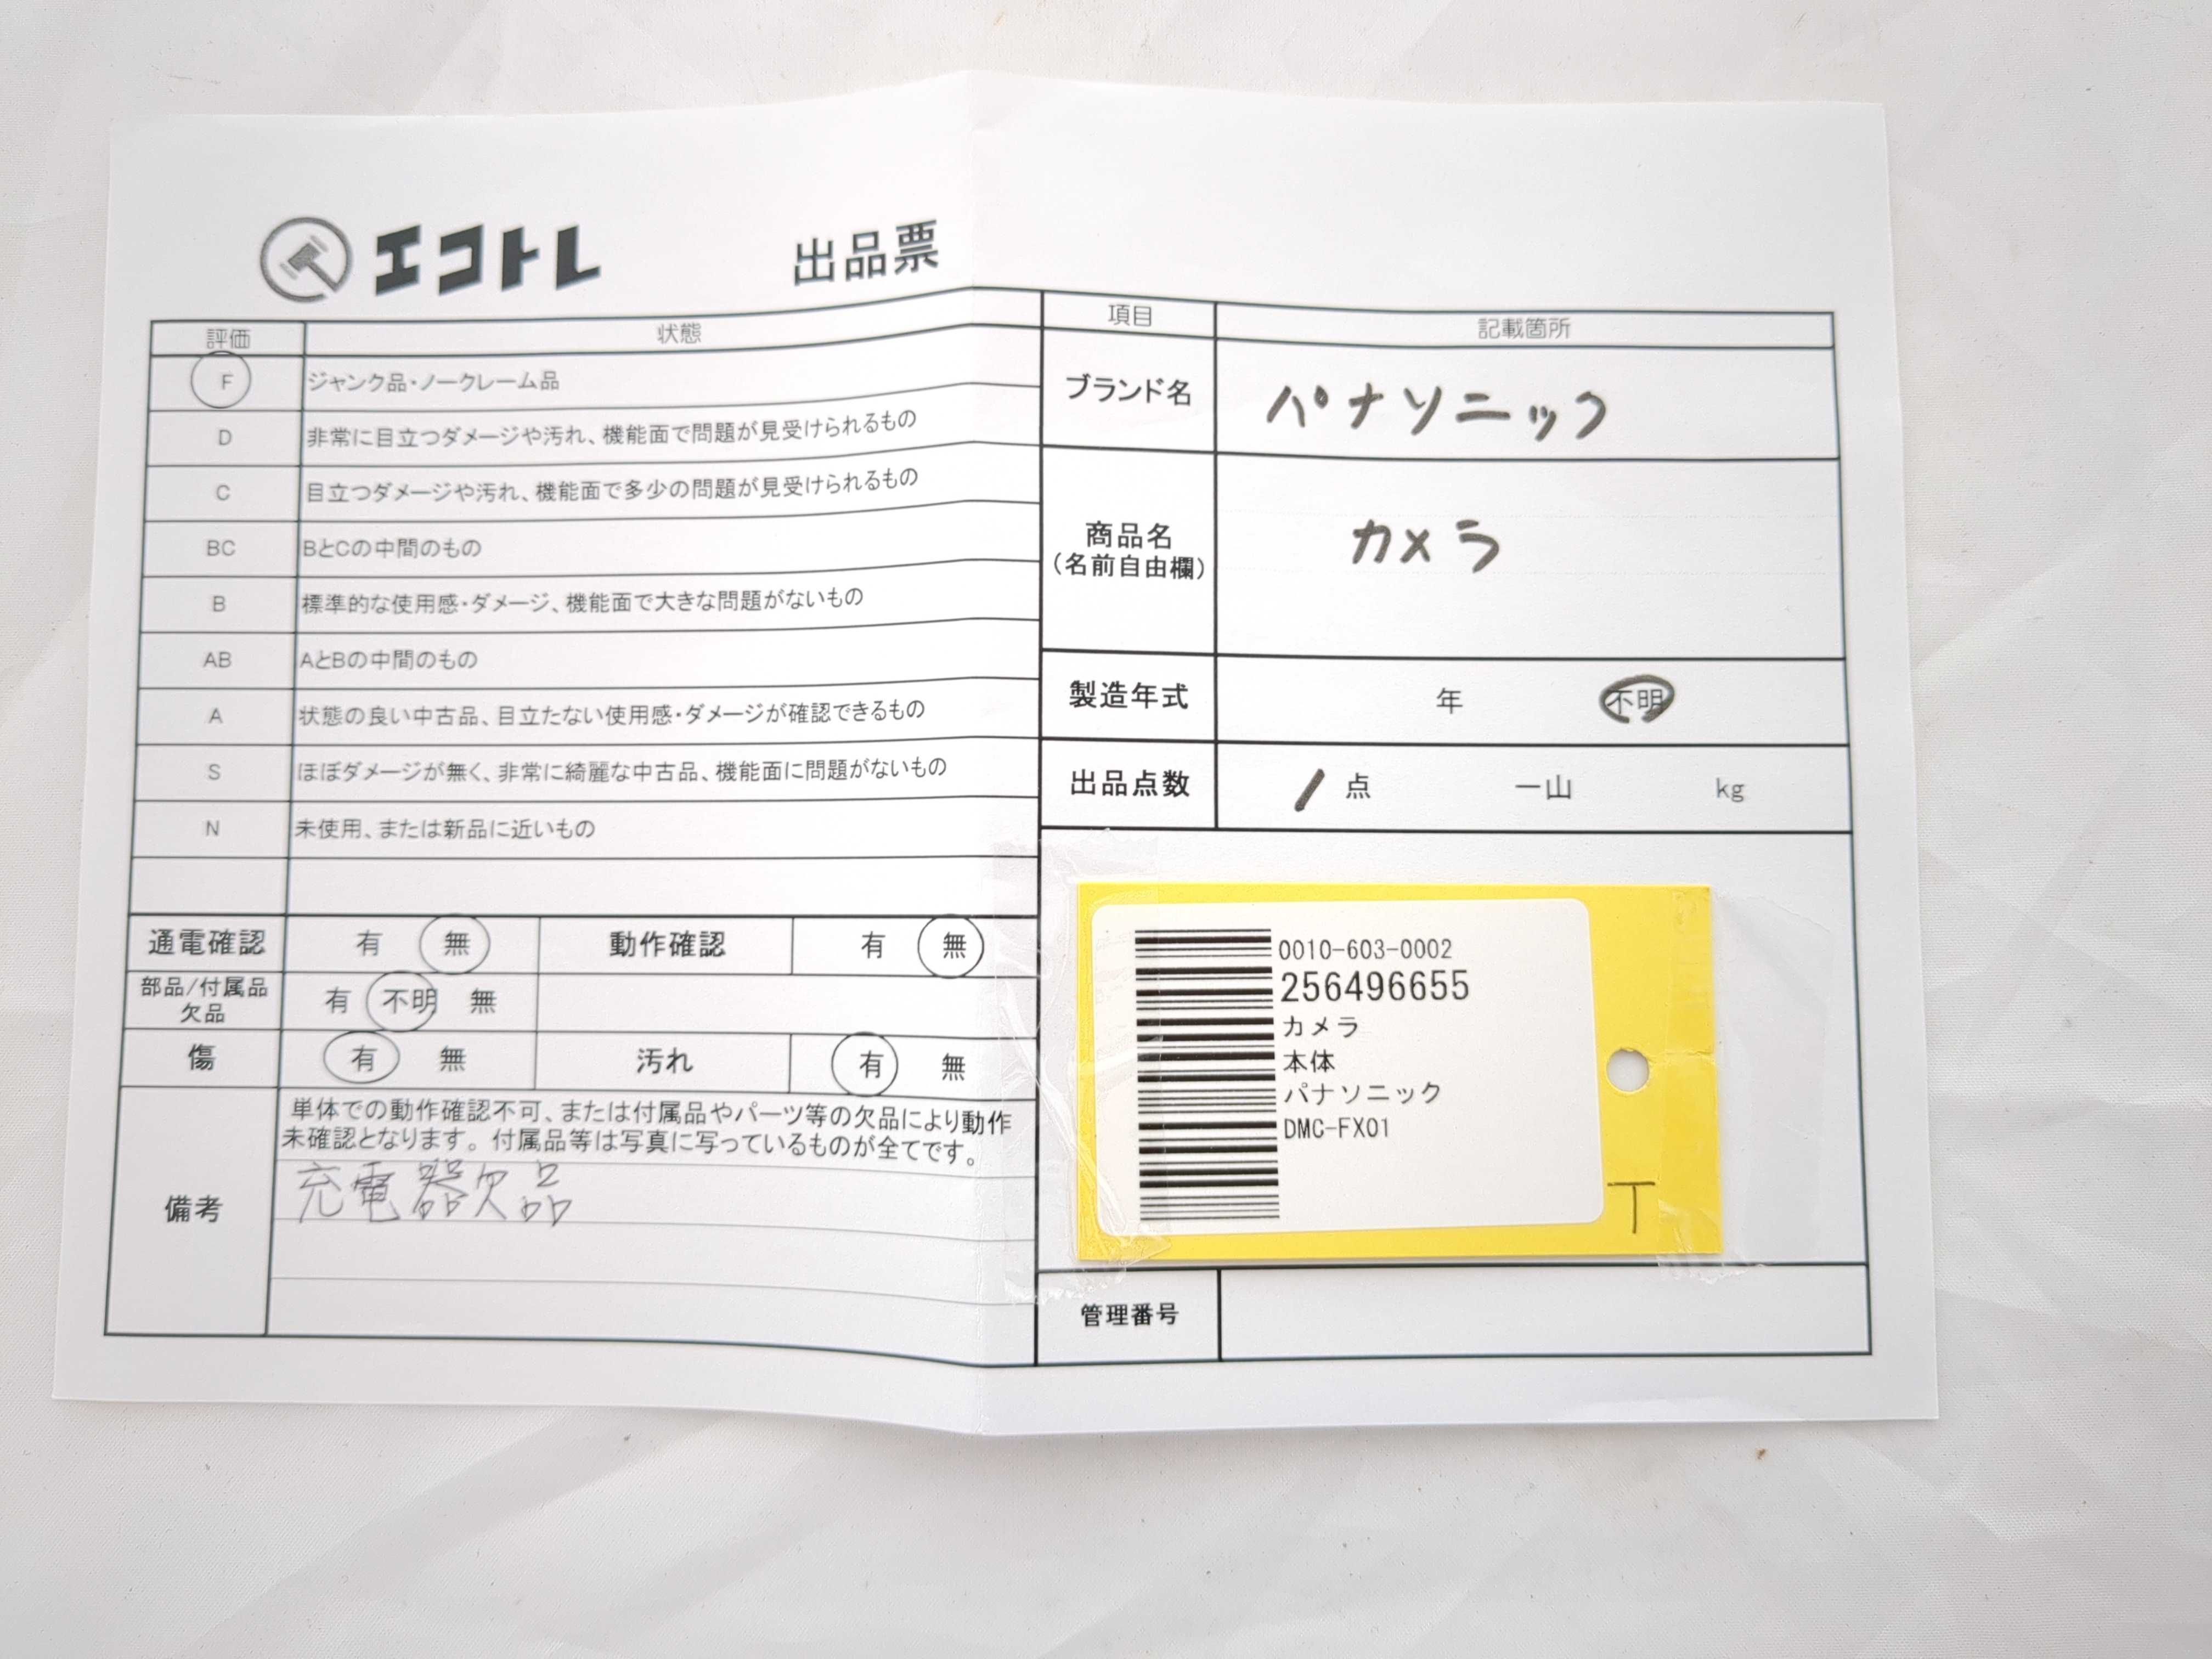 エコトレ 出品票
評価 状態
F ジャンク品・ノークレーム品
D 非常に目立つダメージや汚れ、機能面で問題が見受けられるもの
C 目立つダメージや汚れ、機能面で多少の問題が見受けられるもの
BC BとCの中間のもの
B 標準的な使用感・ダメージ、機能面で大きな問題がないもの
AB AとBの中間のもの
A 状態の良い中古品、目立たない使用感・ダメージが確認できるもの
S ほぼダメージが無く、非常に綺麗な中古品、機能面に問題がないもの
N 未使用、または新品に近いもの
通電確認 有 無 動作確認 有 無
部品/付属品
欠品 有 不明 無
傷 有 無 汚れ 有 無
備考
単体での動作確認不可、または付属品やパーツ等の欠品により動作
未確認となります。付属品等は写真に写っているものが全てです。
充電器欠品
項目 記載箇所
ブランド名 パナソニック
商品名
(名前自由欄)
カメラ
製造年式 年 不明
出品点数 1 点 一山 kg
0010-603-0002
256496655
カメラ
本体
パナソニック
DMC-FX01
T
管理番号